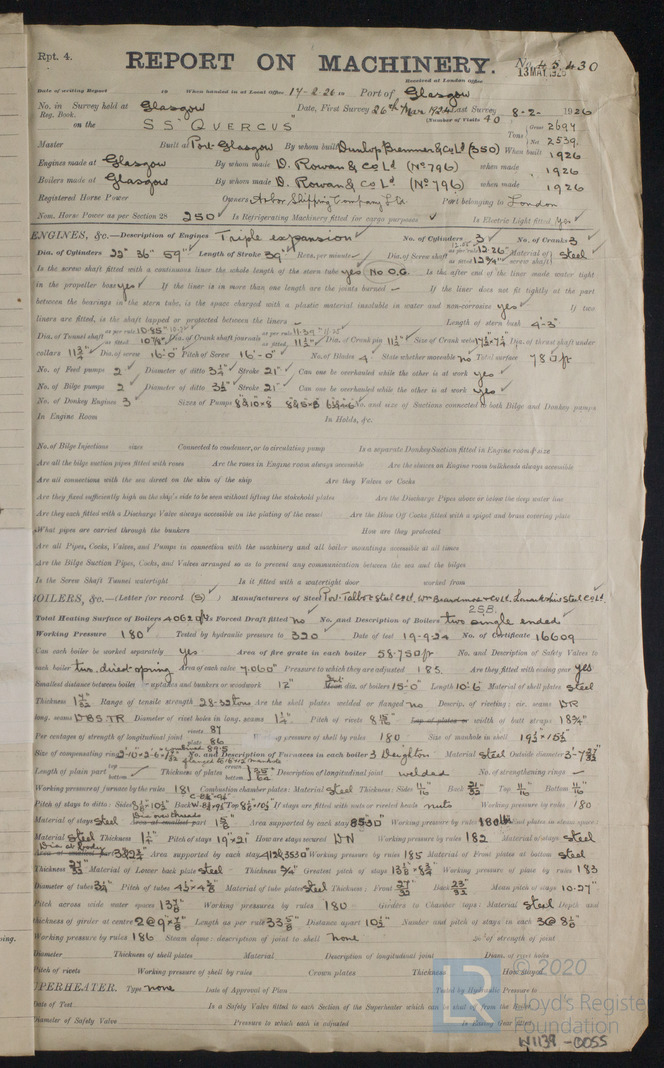 Rpt. 4.
REPORT ON MACHINERY.
No. 45,430
13 MAY 1926
Received at London Office
Date of writing Report 19 When handed in at Local Office 17-2-26 19 Port of Glasgow
No. in Survey held at Glasgow Date, First Survey 26th Mar 1924 Last Survey 8-2- 1926
Reg. Book. (Number of Visits 40
on the SS "QUERCUS" Tons Gross 2694
Net 2539
Master Built at Port Glasgow By whom built Dunlop Bremner & Co Ld (350) When built 1926
Engines made at Glasgow By whom made D. Rowan & Co Ld (No 796) when made 1926
Boilers made at Glasgow By whom made D. Rowan & Co Ld (No 796) when made 1926
Registered Horse Power Owners Arbor Shipping Company Ltd Port belonging to London
Nom. Horse Power as per Section 28 250 Is Refrigerating Machinery fitted for cargo purposes Is Electric Light fitted Yes
ENGINES, &c.—Description of Engines Triple expansion No. of Cylinders 3 No. of Cranks 3
Dia. of Cylinders 22" 36" 59" Length of Stroke 39" Revs. per minute Dia. of Screw shaft as per rule 12.26 as fitted 12 3/4" Material of screw shaft Steel
Is the screw shaft fitted with a continuous liner the whole length of the stern tube yes No O.G. Is the after end of the liner made water tight
in the propeller boss yes If the liner is in more than one length are the joints burned If the liner does not fit tightly at the part
between the bearings in the stern tube, is the space charged with a plastic material insoluble in water and non-corrosive yes If two
liners are fitted, is the shaft lapped or protected between the liners Length of stern bush 4'-3"
Dia. of Tunnel shaft as per rule 10.85" as fitted 10 7/8" Dia. of Crank shaft journals as per rule 11.39" as fitted 11 1/2" Dia. of Crank pin 11 1/2" Size of Crank webs Dia. of thrust shaft under
collars 11 3/4" Dia. of screw 16'-0" Pitch of Screw 16'-0" No. of Blades 4 State whether moveable no Total surface 78 □ft
No. of Feed pumps 2 Diameter of ditto 3 1/4" Stroke 21" Can one be overhauled while the other is at work yes
No. of Bilge pumps 2 Diameter of ditto 3 1/2" Stroke 21" Can one be overhauled while the other is at work yes
No. of Donkey Engines 3 Sizes of Pumps No. and size of Suctions connected to both Bilge and Donkey pumps
In Engine Room In Holds, &c.
No. of Bilge Injections sizes Connected to condenser, or to circulating pump Is a separate Donkey Suction fitted in Engine room & size
Are all the bilge suction pipes fitted with roses Are the roses in Engine room always accessible Are the sluices on Engine room bulkheads always accessible
Are all connections with the sea direct on the skin of the ship Are they Valves or Cocks
Are they fixed sufficiently high on the ship's side to be seen without lifting the stokehold plates Are the Discharge Pipes above or below the deep water line
Are they each fitted with a Discharge Valve always accessible on the plating of the vessel Are the Blow Off Cocks fitted with a spigot and brass covering plate
What pipes are carried through the bunkers How are they protected
Are all Pipes, Cocks, Valves, and Pumps in connection with the machinery and all boiler mountings accessible at all times
Are the Bilge Suction Pipes, Cocks, and Valves arranged so as to prevent any communication between the sea and the bilges
Is the Screw Shaft Tunnel watertight Is it fitted with a watertight door worked from
OILERS, &c.—(Letter for record (S) ) Manufacturers of Steel Port Talbot Steel Co Ld, Wm Beardmore & Co Ld. Lanarkshire Steel Co Ld
2.S.B.
Total Heating Surface of Boilers 4062 □ft Is Forced Draft fitted no No. and Description of Boilers two single ended
Working Pressure 180 Tested by hydraulic pressure to 320 Date of test 19-9-24 No. of Certificate 16609
Can each boiler be worked separately yes Area of fire grate in each boiler 58.75 □ft No. and Description of Safety Valves to
each boiler two direct spring Area of each valve 7.06□" Pressure to which they are adjusted 185. Are they fitted with easing gear yes
Smallest distance between boilers or uptakes and bunkers or woodwork 12" dia. of boilers 15'-0" Length 10'-6" Material of shell plates steel
Thickness 1 7/32" Range of tensile strength 28-32 tons Are the shell plates welded or flanged no Descrip. of riveting: cir. seams DR
long. seams DBS.TR Diameter of rivet holes in long. seams 1 1/4" Pitch of rivets Lap of plates or width of butt straps 18 3/4"
Per centages of strength of longitudinal joint rivets 87 plate 86 Working pressure of shell by rules 180 Size of manhole in shell 19 1/2" x 15 1/2"
Size of compensating ring No. and Description of Furnaces in each boiler 3 Deighton Material Steel Outside diameter
Length of plain part top bottom Thickness of plates crown bottom 35/64 Description of longitudinal joint welded No. of strengthening rings
Working pressure of furnace by the rules 181 Combustion chamber plates: Material steel Thickness: Sides 11/16" Back 21/32" Top 11/16" Bottom 11/16"
Pitch of stays to ditto: Sides Back Top If stays are fitted with nuts or riveted heads nuts Working pressure by rules 180
Material of stays Steel Area supported by each stay Working pressure by rules 180 lb End plates in steam space:
Material Steel Thickness 1 1/4" Pitch of stays 19" x 21" How are stays secured DN Working pressure by rules 182 Material of stays Steel
Area supported by each stay Working pressure by rules 185 Material of Front plates at bottom Steel
Thickness 27/32" Material of Lower back plate steel Thickness 3/4" Greatest pitch of stays Working pressure of plate by rules 183
Diameter of tubes 3 1/4" Pitch of tubes Material of tube plates Steel Thickness: Front 27/32" Back 23/32" Mean pitch of stays 10.27"
Pitch across wide water spaces 13 7/8" Working pressures by rules 180 Girders to Chamber tops: Material Steel Depth and
thickness of girder at centre 2 @ 9" x 7/8" Length as per rule 33 5/8" Distance apart 10 1/2" Number and pitch of stays in each 3 @ 8 1/8"
Working pressure by rules 186 Steam dome: description of joint to shell none % of strength of joint
Diameter Thickness of shell plates Material Description of longitudinal joint Diam. of rivet holes
Pitch of rivets Working pressure of shell by rules Crown plates Thickness How stayed
UPERHEATER. Type none Date of Approval of Plan Tested by Hydraulic Pressure to
Date of Test Is a Safety Valve fitted to each Section of the Superheater which can be shut off from the Boiler
Diameter of Safety Valve Pressure to which each is adjusted Is Easing Gear fitted
© 2020
LR
Lloyd's Register
Foundation
W1139-0055